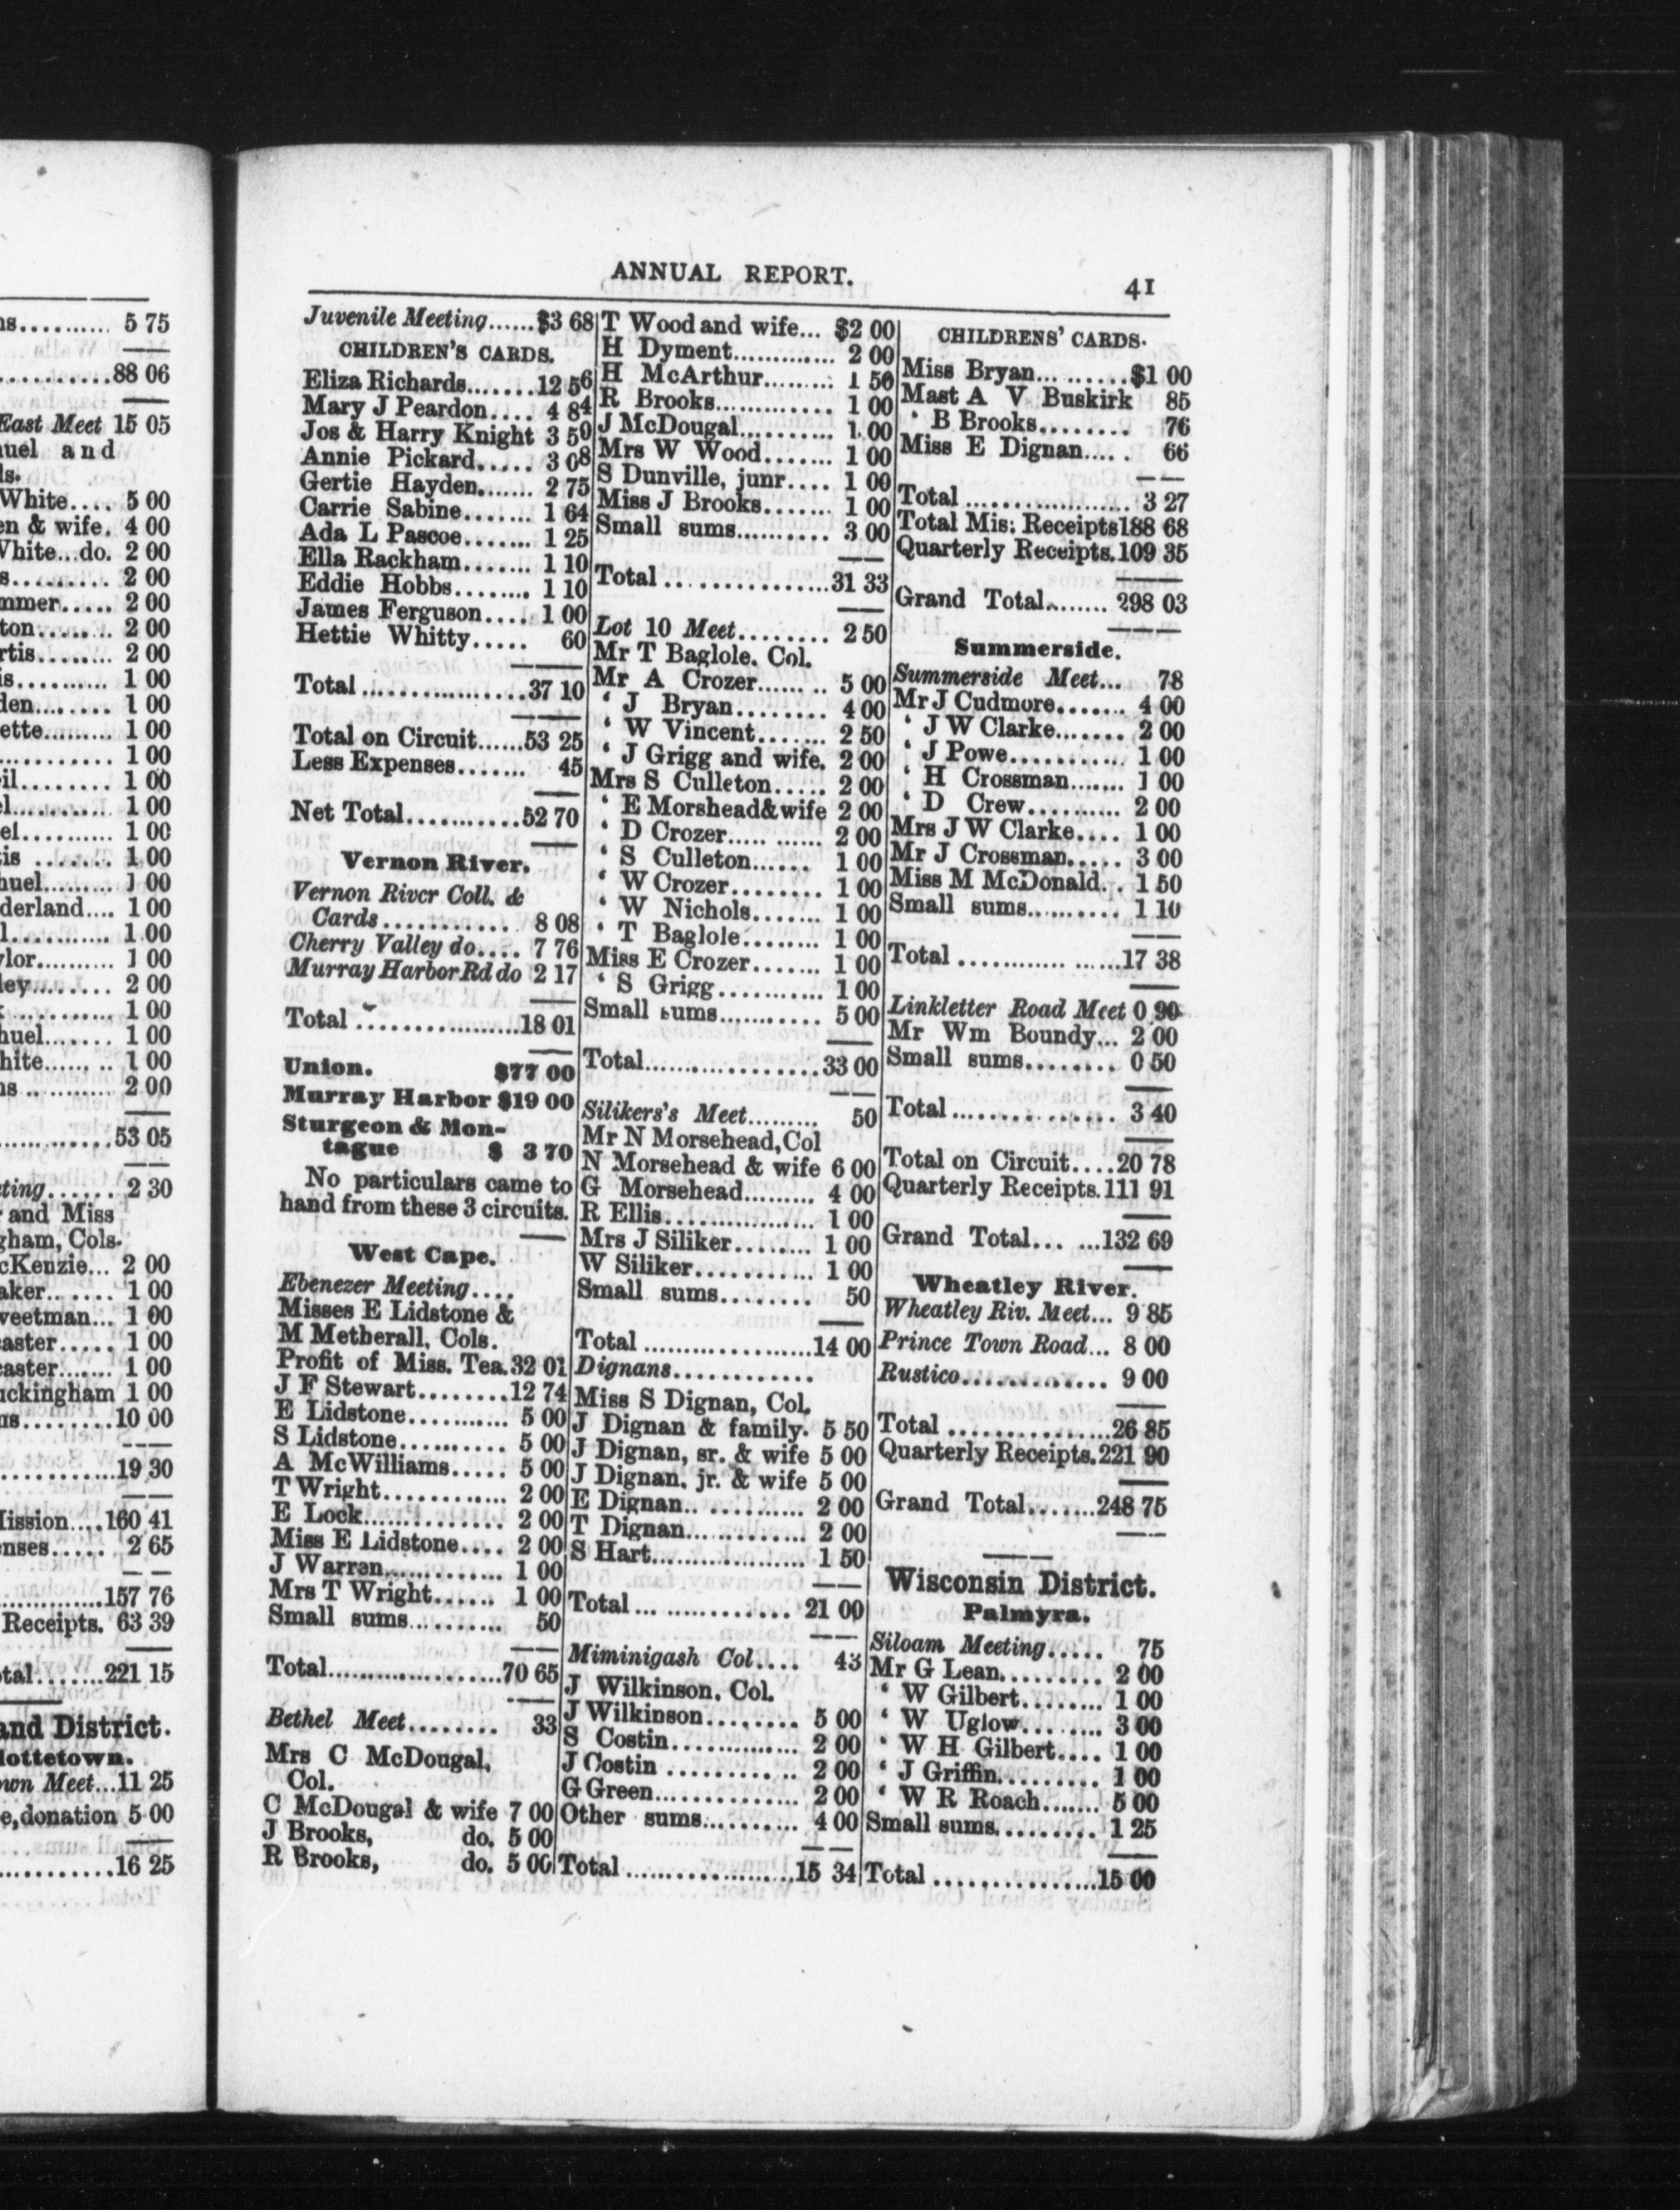 ns.......... 5 75
..........88 06
East Meet 15 05
uel and
ls.
White.... 5 00
en & wife. 4 00
White...do. 2 00
s......... 2 00
mmer..... 2 00
ton........ 2 00
rtis........ 2 00
is.......... 1 00
den........ 1 00
ette......... 1 00
............ 1 00
il......... 1 00
el.......... 1 00
el.......... 1 00
is ........ 1 00
huel......... 1 00
derland.... 1 00
l........... 1 00
ylor.......... 1 00
ley........ 2 00
........... 1 00
huel....... 1 00
hite........ 1 00
ns .......... 2 00
............53 05
ting...... 2 30
and Miss
gham, Cols.
cKenzie... 2 00
aker....... 1 00
weetman... 1 00
caster..... 1 00
caster....... 1 00
uckingham 1 00
ns........10 00
............19 30
Mission....160 41
enses..... 2 65
..............157 76
Receipts. 63 39
otal.......221 15
and District.
lottetown.
own Meet...11 25
e, donation 5 00
............16 25
ANNUAL REPORT. 41
Juvenile Meeting......$3 68
CHILDREN'S CARDS.
Eliza Richards.......12 56
Mary J Peardon.... 4 84
Jos & Harry Knight 3 50
Annie Pickard..... 3 08
Gertie Hayden....... 2 75
Carrie Sabine....... 1 64
Ada L Pascoe....... 1 25
Ella Rackham....... 1 10
Eddie Hobbs........ 1 10
James Ferguson.... 1 00
Hettie Whitty..... 60
Total ................37 10
Total on Circuit......53 25
Less Expenses....... 45
Net Total...........52 70
Vernon River.
Vernon River Coll. &
Cards............ 8 08
Cherry Valley do.... 7 76
Murray Harbor Rd do 2 17
Total .................18 01
Union. $77 00
Murray Harbor $19 00
Sturgeon & Mon-
tague $ 3 70
No particulars came to
hand from these 3 circuits.
West Cape.
Ebenezer Meeting....
Misses E Lidstone &
M Metherall, Cols.
Profit of Miss. Tea.32 01
J F Stewart........12 74
E Lidstone........... 5 00
S Lidstone........... 5 00
A McWilliams..... 5 00
T Wright............ 2 00
E Lock............... 2 00
Miss E Lidstone.... 2 00
J Warren............. 1 00
Mrs T Wright...... 1 00
Small sums.......... 50
Total..................70 65
Bethel Meet........ 33
Mrs C McDougal,
Col.
C McDougal & wife 7 00
J Brooks, do. 5 00
R Brooks, do. 5 00
T Wood and wife... $2 00
H Dyment............. 2 00
H McArthur......... 1 50
R Brooks............. 1 00
J McDougal.......... 1 00
Mrs W Wood....... 1 00
S Dunville, junr.... 1 00
Miss J Brooks....... 1 00
Small sums.......... 3 00
Total .................31 33
Lot 10 Meet........ 2 50
Mr T Baglole. Col.
Mr A Crozer........ 5 00
‘ J Bryan......... 4 00
‘ W Vincent....... 2 50
‘ J Grigg and wife. 2 00
Mrs S Culleton..... 2 00
‘ E Morshead & wife 2 00
‘ D Crozer........... 2 00
‘ S Culleton...... 1 00
‘ W Crozer......... 1 00
‘ W Nichols....... 1 00
‘ T Baglole........ 1 00
Miss E Crozer....... 1 00
‘ S Grigg........... 1 00
Small sums........... 5 00
Total..................33 00
Silikers's Meet......... 50
Mr N Morsehead, Col
N Morsehead & wife 6 00
G Morsehead......... 4 00
R Ellis................. 1 00
Mrs J Siliker........ 1 00
W Siliker............ 1 00
Small sums........ 50
Total ..................14 00
Dignans.............
Miss S Dignan, Col.
J Dignan & family. 5 50
J Dignan, sr. & wife 5 00
J Dignan. jr. & wife 5 00
E Dignan............. 2 00
T Dignan............. 2 00
S Hart.................. 1 50
Total ............... 21 00
Miminigash Col.... 43
J Wilkinson. Col.
J Wilkinson......... 5 00
S Costin............. 2 00
J Costin ............ 2 00
G Green.............. 2 00
Other sums.......... 4 00
Total ..................15 34
CHILDRENS' CARDS.
Miss Bryan..........$1 00
Mast A V Buskirk 85
‘ B Brooks........ 76
Miss E Dignan..... 66
Total .................. 3 27
Total Mis: Receipts188 68
Quarterly Receipts.109 35
Grand Total........ 298 03
Summerside.
Summerside Meet... 78
Mr J Cudmore....... 4 00
‘ J W Clarke....... 2 00
‘ J Powe........... 1 00
‘ H Crossman....... 1 00
‘ D Crew.......... 2 00
Mrs J W Clarke.... 1 00
Mr J Crossman..... 3 00
Miss M McDonald. . 1 50
Small sums.......... 1 10
Total ..................17 38
Linkletter Road Meet 0 90
Mr Wm Boundy... 2 00
Small sums......... 0 50
Total ................ 3 40
Total on Circuit....20 78
Quarterly Receipts.111 91
Grand Total... ...132 69
Wheatley River.
Wheatley Riv. Meet... 9 85
Prince Town Road... 8 00
Rustico.............. 9 00
Total .................26 85
Quarterly Receipts.221 90
Grand Total.......248 75
Wisconsin District.
Palmyra.
Siloam Meeting..... 75
Mr G Lean.......... 2 00
‘ W Gilbert........ 1 00
‘ W Uglow........ 3 00
‘ W H Gilbert.... 1 00
‘ J Griffin.......... 1 00
‘ W R Roach....... 5 00
Small sums.......... 1 25
Total .................15 00